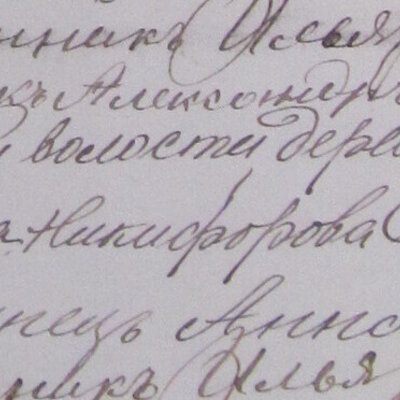 нникъ Илья
къ Александръ
и волости дерев
а Никифорова
нецъ Анна
никъ Илья